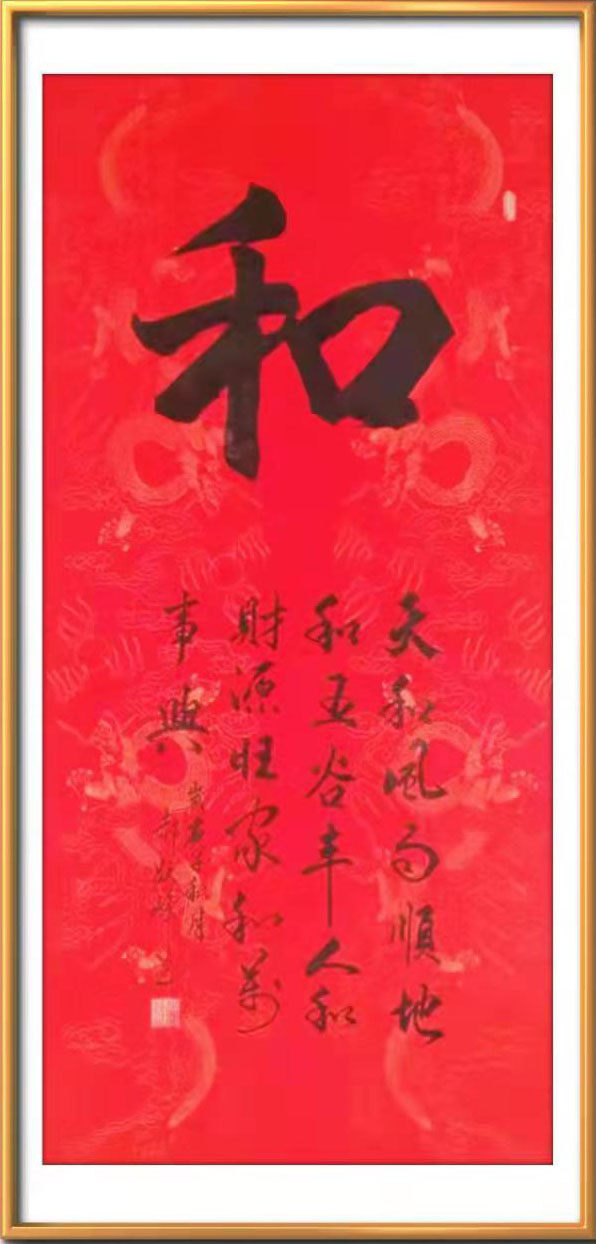 和
天和风雨順地
和五谷丰人和
財源旺家和萬
事興
歲在
秋月